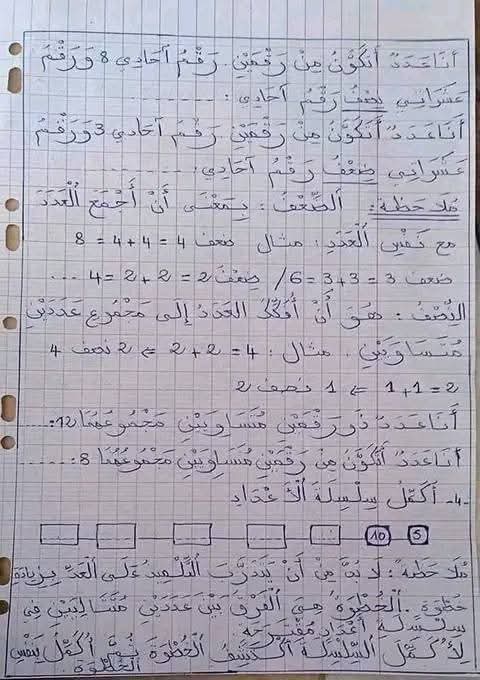 أَنَا عَدَدٌ أَتَكَوَّنُ مِنْ رَقْمَيْنِ. رَقْمُ آحَادِي 8 وَرَقْمُ
عَشَرَاتِي نِصْفُ رَقْمُ آحَادِي : ..........
أَنَا عَدَدٌ أَتَكَوَّنُ مِنْ رَقْمَيْنِ رَقْمُ آحَادِي 3 وَرَقْمُ
عَشَرَاتِي ضِعْفُ رَقْمُ آحَادِي: ..........
مُلَاحَظَة: الضِّعْفُ : بِمَعْنَى أَنْ أَجْمَعَ الْعَدَدَ
مع نَفْسِ الْعَدَدِ : مثال ضعف 4 = 4+4 = 8
ضعف 3 = 3+3 = 6 / ضِعْفُ 2 = 2+2 = 4 ...
النِّصْفُ : هُوَ أَنْ أُفَكِّكَ العَدَدَ إِلَى مَجْمُوعِ عَدَدَيْنِ
مُتَسَاوِيَيْنِ. مثال : 4 = 2+2 ⇐ 2 نصف 4
2 = 1+1 ⇐ 1 نصف 2
أَنَا عَدَدٌ ذُو رَقْمَيْنِ مُتَسَاوِيَيْنِ مَجْمُوعُهُمَا 12: ....
أَنَا عَدَدٌ أَتَكَوَّنُ مِنْ رَقْمَيْنِ مُتَسَاوِيَيْنِ مَجْمُوعُهُمَا 8: ....
4- أُكَمِّلُ سِلْسِلَةَ الْأَعْدَادِ
5 10
مُلَاحَظَة : لَا بُدَّ مِنْ أَنْ يَتَدَرَّبَ التِّلْمِيذُ عَلَى العَدِّ بِزِيَادَةِ
خطْوَة. الْخُطْوَةُ هِيَ الْفَرْقُ بَيْنَ عَدَدَيْنِ مُتَتَالِيَيْنِ فِي
سِلْسِلَةِ أَعْدَادٍ مُقْتَرَحَة.
لِأُكَمِّلَ السِّلْسِلَةَ أَكْتَشِفُ الْخُطْوَةَ ثُمَّ أُكَمِّلُ بِنَفْسِ
الْخُطْوَة.